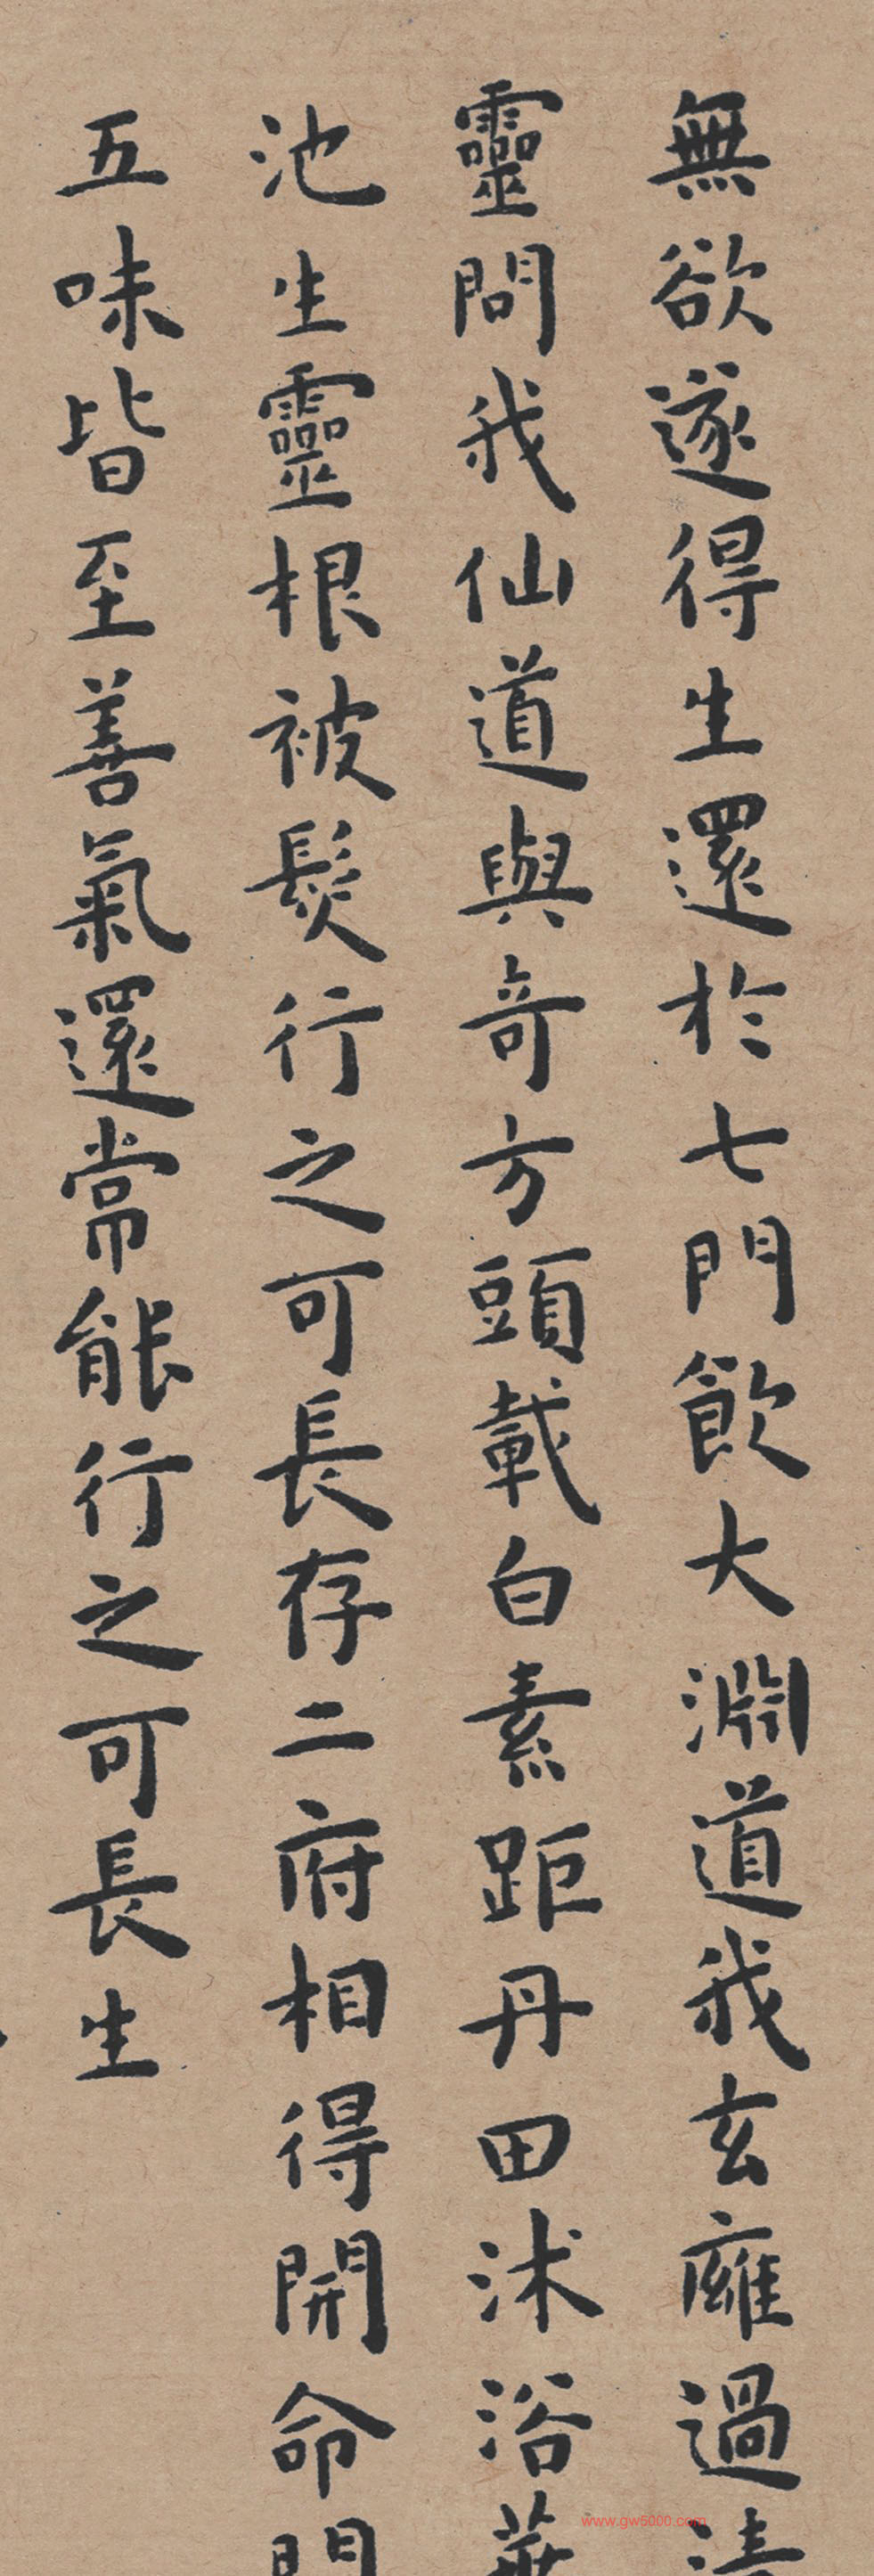 無欲遂得生還於七門飲大淵道我玄廱過清
靈問我仙道與奇方頭載白素距丹田沐浴華
池生靈根被髮行之可長存二府相得開命門
五味皆至善氣還常能行之可長生
www.gw5000.com